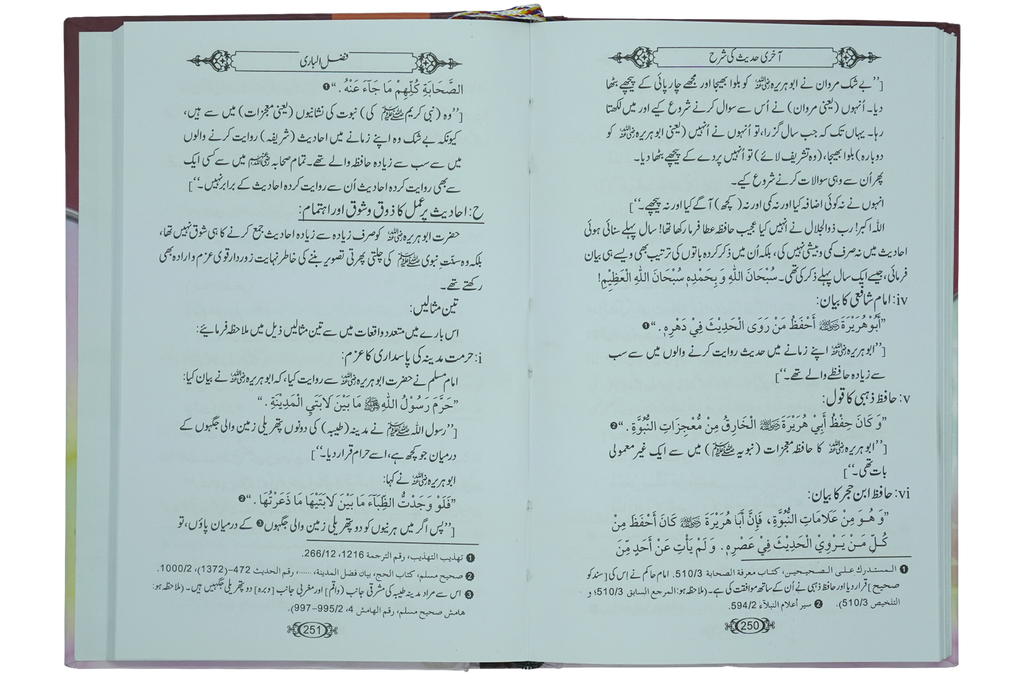 آخری حدیث کی شرح
[’’بے شک مروان نے ابوہریرہ رضی اللہ عنہ کو بلوا بھیجا اور مجھے چارپائی کے پیچھے بٹھا
دیا۔ اُنہوں (یعنی مروان) نے اُس سے سوال کرنے شروع کیے اور میں لکھتا
رہا۔ یہاں تک کہ جب سال گزرا، تو اُنہوں نے اُنہیں (یعنی ابوہریرہ رضی اللہ عنہ کو
دوبارہ) بلوا بھیجا، (وہ تشریف لائے) تو اُنہیں پردے کے پیچھے بٹھا دیا۔
پھر اُن سے وہی سوالات کرنے شروع کیے۔
انہوں نے نہ کوئی اضافہ کیا اور نہ کمی اور نہ (کچھ) آگے کیا اور نہ پیچھے۔‘‘]
اللہ اکبر! رب ذوالجلال نے انہیں کیا عجیب حافظہ عطا فرما رکھا تھا! سال پہلے سنائی ہوئی
احادیث میں نہ صرف کمی و بیشی نہیں کی، بلکہ اُن میں ذکر کردہ باتوں کی ترتیب بھی ویسے ہی بیان
فرمائی، جیسے ایک سال پہلے ذکر کی تھی۔ سُبْحَانَ اللّٰهِ وَ بِحَمْدِهٖ سُبْحَانَ اللّٰهِ الْعَظِيْمِ!
iv: امام شافعی کا بیان:
”أَبُوْهُرَيْرَةَ رضی اللہ عنہ أَحْفَظُ مَنْ رَوَى الْحَدِيْثَ فِيْ دَهْرِهِ.“ ❶
[’’ابوہریرہ رضی اللہ عنہ اپنے زمانے میں حدیث روایت کرنے والوں میں سے سب
سے زیادہ حافظے والے تھے۔‘‘]
v: حافظ ذہبی کا قول:
”وَ كَانَ حِفْظُ أَبِيْ هُرَيْرَةَ رضی اللہ عنہ الْخَارِقُ مِنْ مُّعْجِزَاتِ النُّبُوَّةِ.“ ❷
[’’ابوہریرہ رضی اللہ عنہ کا حافظہ معجزات (نبویہ ﷺ) میں سے ایک غیر معمولی
بات تھی۔‘‘]
vi: حافظ ابن حجر کا بیان:
”وَ هُوَ مِنْ عَلَامَاتِ النُّبُوَّةِ، فَإِنَّ أَبَا هُرَيْرَةَ رضی اللہ عنہ كَانَ أَحْفَظَ مِنْ
كُلِّ مَنْ يَرْوِيْ الْحَدِيْثَ فِيْ عَصْرِهِ. وَ لَمْ يَأْتِ عَنْ أَحَدٍ مِّنَ
❶ المستدرك على الصحيحين، كتاب معرفة الصحابة 510/3. امام حاکم نے اس کی [سند کو
صحیح] قرار دیا اور حافظ ذہبی نے اُن کے ساتھ موافقت کی ہے۔ (ملاحظہ ہو: المرجع السابق 510/3؛ و
التلخیص 510/3). ❷ سير أعلام النبلآء 594/2.
250
فضل الباری
الصَّحَابَةِ كُلِّهِمْ مَا جَآءَ عَنْهُ.“ ❶
[’’وہ (نبی کریم ﷺ کی) نبوت کی نشانیوں (یعنی معجزات) میں سے ہیں،
کیونکہ بے شک وہ اپنے زمانے میں احادیث (شریفہ) روایت کرنے والوں
میں سے سب سے زیادہ حافظہ والے تھے۔ تمام صحابہ رضی اللہ عنہم میں سے کسی ایک
سے بھی روایت کردہ احادیث اُن سے روایت کردہ احادیث کے برابر نہیں۔‘‘]
ح: احادیث پر عمل کا ذوق و شوق اور اہتمام:
حضرت ابوہریرہ رضی اللہ عنہ کو صرف زیادہ سے زیادہ احادیث جمع کرنے کا ہی شوق نہیں تھا،
بلکہ وہ سنّتِ نبوی ﷺ کی چلتی پھرتی تصویر بننے کی خاطر نہایت زور دار قوی عزم و ارادہ بھی
رکھتے تھے۔
تین مثالیں:
اس بارے میں متعدد واقعات میں سے تین مثالیں ذیل میں ملاحظہ فرمائیے:
i: حرمت مدینہ کی پاسداری کا عزم:
امام مسلم نے حضرت ابوہریرہ رضی اللہ عنہ سے روایت کیا، کہ ابوہریرہ رضی اللہ عنہ نے بیان کیا:
”حَرَّمَ رَسُوْلُ اللّٰهِ ﷺ مَا بَيْنَ لَابَتَيِ الْمَدِيْنَةِ.“
[’’رسول اللہ ﷺ نے مدینہ (طیبہ) کی دونوں پتھریلی زمین والی جگہوں کے
درمیان جو کچھ ہے، اسے حرام قرار دیا۔‘‘]
ابوہریرہ رضی اللہ عنہ نے کہا:
”فَلَوْ وَجَدْتُّ الظِّبَاءَ مَا بَيْنَ لَابَتَيْهَا مَا ذَعَرْتُهَا.“ ❷
[’’پس اگر میں ہرنیوں کو دو پتھریلی زمین والی جگہوں ❸ کے درمیان پاؤں، تو
❶ تهذيب التهذيب، رقم الترجمة 1216، 266/12.
❷ صحيح مسلم، كتاب الحج، باب فضل المدينة، ......، رقم الحديث 472–(1372)، 1000/2.
❸ اس سے مراد مدینہ طیبہ کی مشرقی جانب (واقم) اور مغربی جانب [وبرہ] دو پتھریلی جگہیں ہیں۔ (ملاحظہ ہو:
هامش صحيح مسلم، رقم الهامش 4، 995/2–997).
251